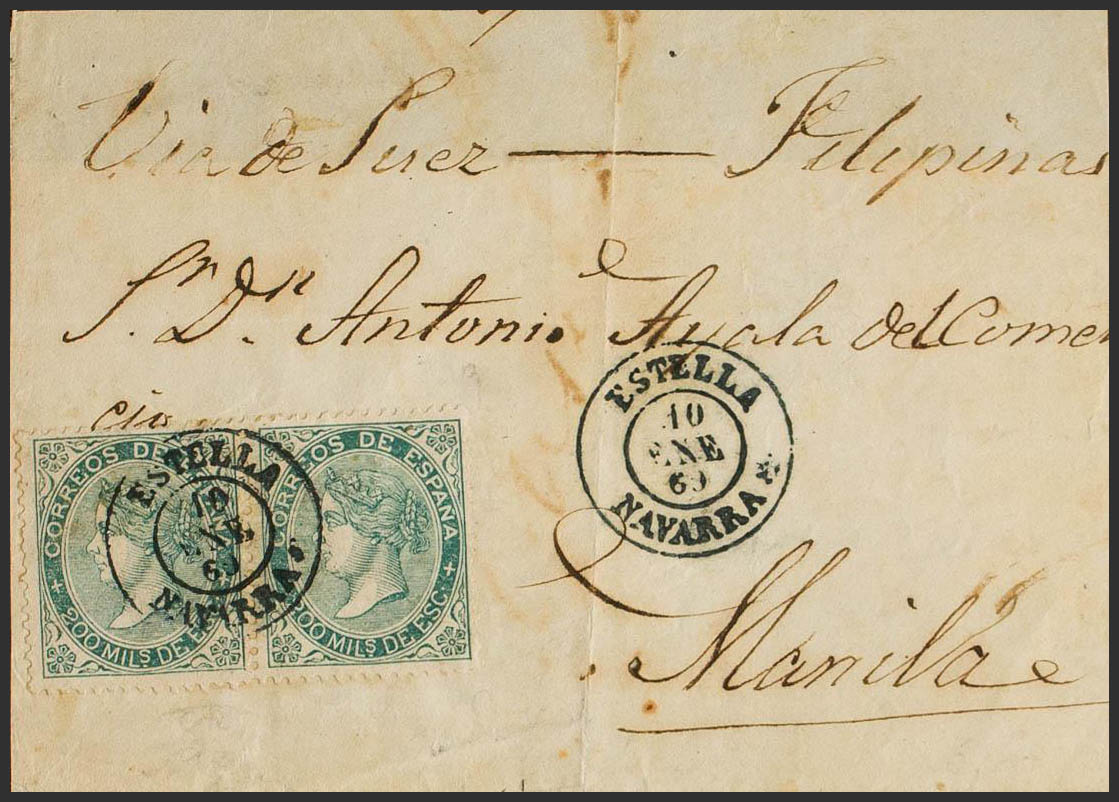 Via de Suez — Filipinas
Sr. Dn. Antonio Ayala del Comer
cio
ESTELLA
10
ENE
69
NAVARRA
CORREOS DE
200 MILS DE ES
ESTELLA
10
ENE
69
NAVARRA
CORREOS DE ESPAÑA
200 MILS DE ESC.
Manila